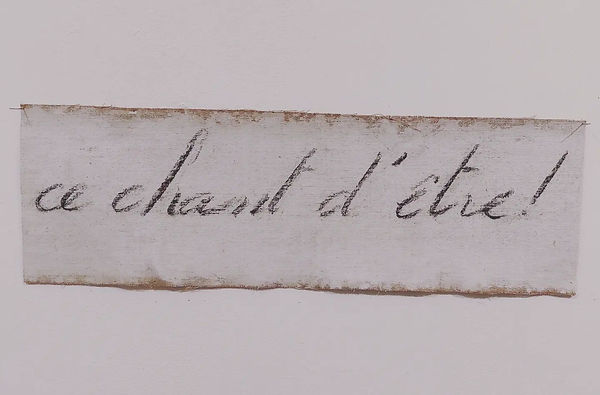 ce chant d'être!